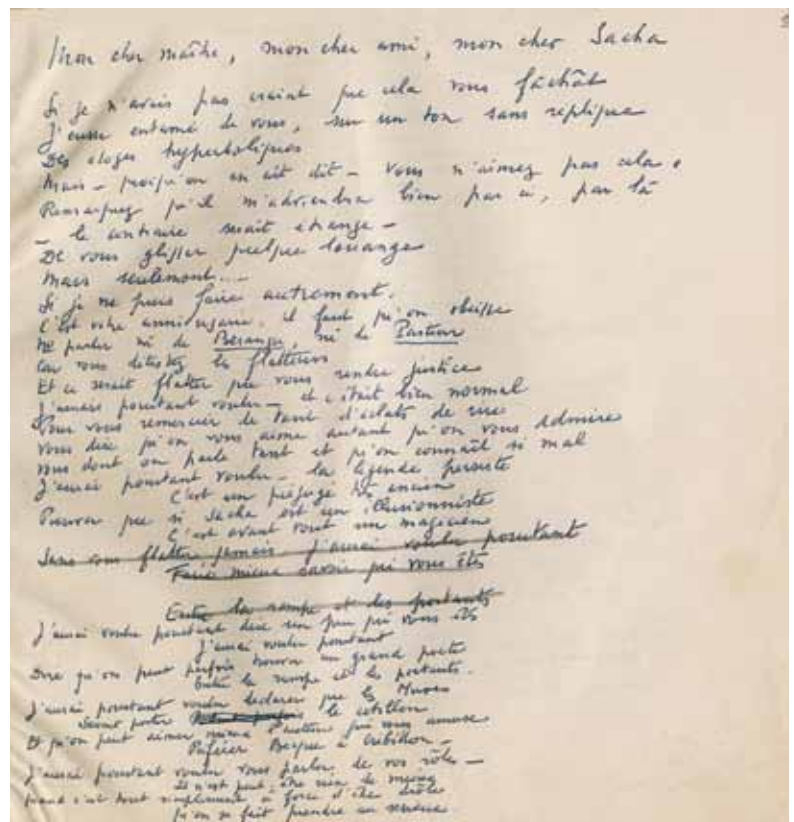 Mon cher maître, mon cher ami, mon cher Sacha
Si je n'avais pas craint que cela vous fâchât
J'eusse entamé de vous, sur un ton sans replique
Des eloges hyperboliques
Mais – quoiqu'on en ait dit – vous n'aimez pas cela.
Remarquez qu'il m'adviendra bien par ci, par là
– le contraire serait etrange –
De vous glisser quelque louange
Mais seulement....
Si je ne puis faire autrement.
C'est votre anniversaire. il faut qu'on obeisse
Ne parler ni de Beranger, ni de Pasteur
Car vous detestez les flatteurs
Et ce serait flatter que vous rendre justice
J'aurais pourtant voulu – et c'était bien normal
Pour vous remercier de tant d'éclats de rire
Vous dire qu'on vous aime autant qu'on vous admire
Vous dont on parle tant et qu'on connaît si mal
J'aurai pourtant voulu – la legende persiste
C'est un prejugé très ancien
Prouver que si Sacha est un illusionniste
C'est avant tout un magicien
Sans vous flatter jamais j'aurai voulu pourtant
Faire mieux savoir qui vous êtes
Entre la rampe et les portants
J'aurai voulu pourtant dire un peu qui vous êtes
J'aurai voulu pourtant
Dire qu'on peut parfois trouver un grand poète
Entre la rampe et les portants.
J'aurai pourtant voulu declarer que les Muses
Savent porter le cotillon
Et qu'on peut aimer mieux l'auteur qui nous amuse
Préférer Becque à Crébillon –
J'aurai pourtant voulu vous parler de vos rôles –
Il n'est peut-être rien de mieux
Quand c'est tout simplement à force d'être drôle
Qu'on se fait prendre au serieux.